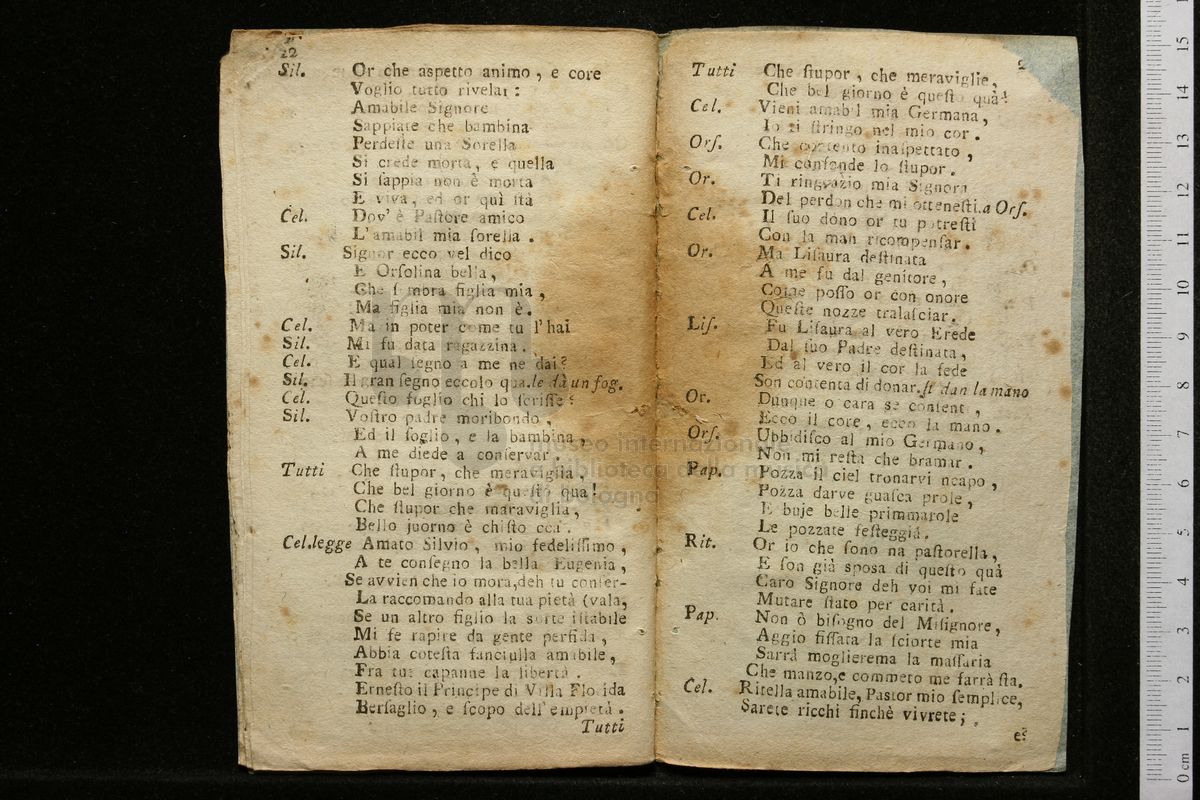 22
Sil. Or che aspetto animo, e core
Voglio tutto rivelar:
Amabile Signore
Sappiate che bambina
Perdeste una Sorella
Si crede morta, e quella
Si ſappia non è morta
E viva, ed or quì ſtà
Cel. Dov' è Paſtore amico
L'amabil mia ſorella.
Sil. Signor ecco vel dico
E Orſolina bella,
Che ſi mora figlia mia,
Ma figlia mia non è.
Cel. Ma in poter come tu l'hai
Sil. Mi fu data ragazzina.
Cel. E qual ſegno a me ne dai?
Sil. Il gran ſegno eccolo qua. le dà un fog.
Cel. Queſto foglio chi lo ſcriſſe?
Sil. Voſtro padre moribondo,
Ed il foglio, e la bambina,
A me diede a conſervar.
Tutti Che ſtupor, che meraviglia,
Che bel giorno è queſto qua!
Che ſtupor che maraviglia,
Bello juorno è chiſto ccà.
Cel. legge Amato Silvio, mio fedeliſſimo,
A te conſegno la bella Eugenia,
Se avvien che io mora, deh tu conſer-
La raccomando alla tua pietà (vala,
Se un altro figlio la sorte iſtabile
Mi fe rapire da gente perfida,
Abbia coteſta fanciulla amabile,
Fra tue capanne la libertà.
Erneſto il Principe di Villa Florida
Berſaglio, e ſcopo dell'empietà.
Tutti
Tutti Che ſtupor, che meraviglie,
Che bel giorno è queſto quà!
Cel. Vieni amabil mia Germana,
Io ti ſtringo nel mio cor.
Orſ. Che contento inaſpettato,
Mi confonde lo ſtupor.
Or. Ti ringrazio mia Signora
Del perdon che mi otteneſti. a Orſ.
Cel. Il ſuo dono or tu potreſti
Con la man ricompenſar.
Or. Ma Liſaura deſtinata
A me fu dal genitore,
Come poſſo or con onore
Queſte nozze tralaſciar.
Liſ. Fu Liſaura al vero Erede
Dal ſuo Padre deſtinata,
Ed al vero il cor la fede
Son contenta di donar. ſi dan la mano
Or. Dunque o cara se conſent,
Ecco il core, ecco la mano.
Orſ. Ubbidiſco al mio Germano,
Non mi reſta che bramar.
Pap. Pozza il ciel tronarvi ncapo,
Pozza darve guaſca prole,
E buje belle primmarole
Le pozzate feſteggià.
Rit. Or io che ſono na paſtorella,
E ſon già sposa di queſto quà
Caro Signore deh voi mi fate
Mutare ſtato per carità.
Pap. Non ò biſogno del Miſignore,
Aggio fiſſata la ſciorte mia
Sarrà moglierema la maſſaria
Che manzo, e commeto me farrà ſta.
Cel. Ritella amabile, Paſtor mio ſemplice,
Sarete ricchi finchè vivrete;
e?
museo internazionale
e biblioteca della musica
di bologna